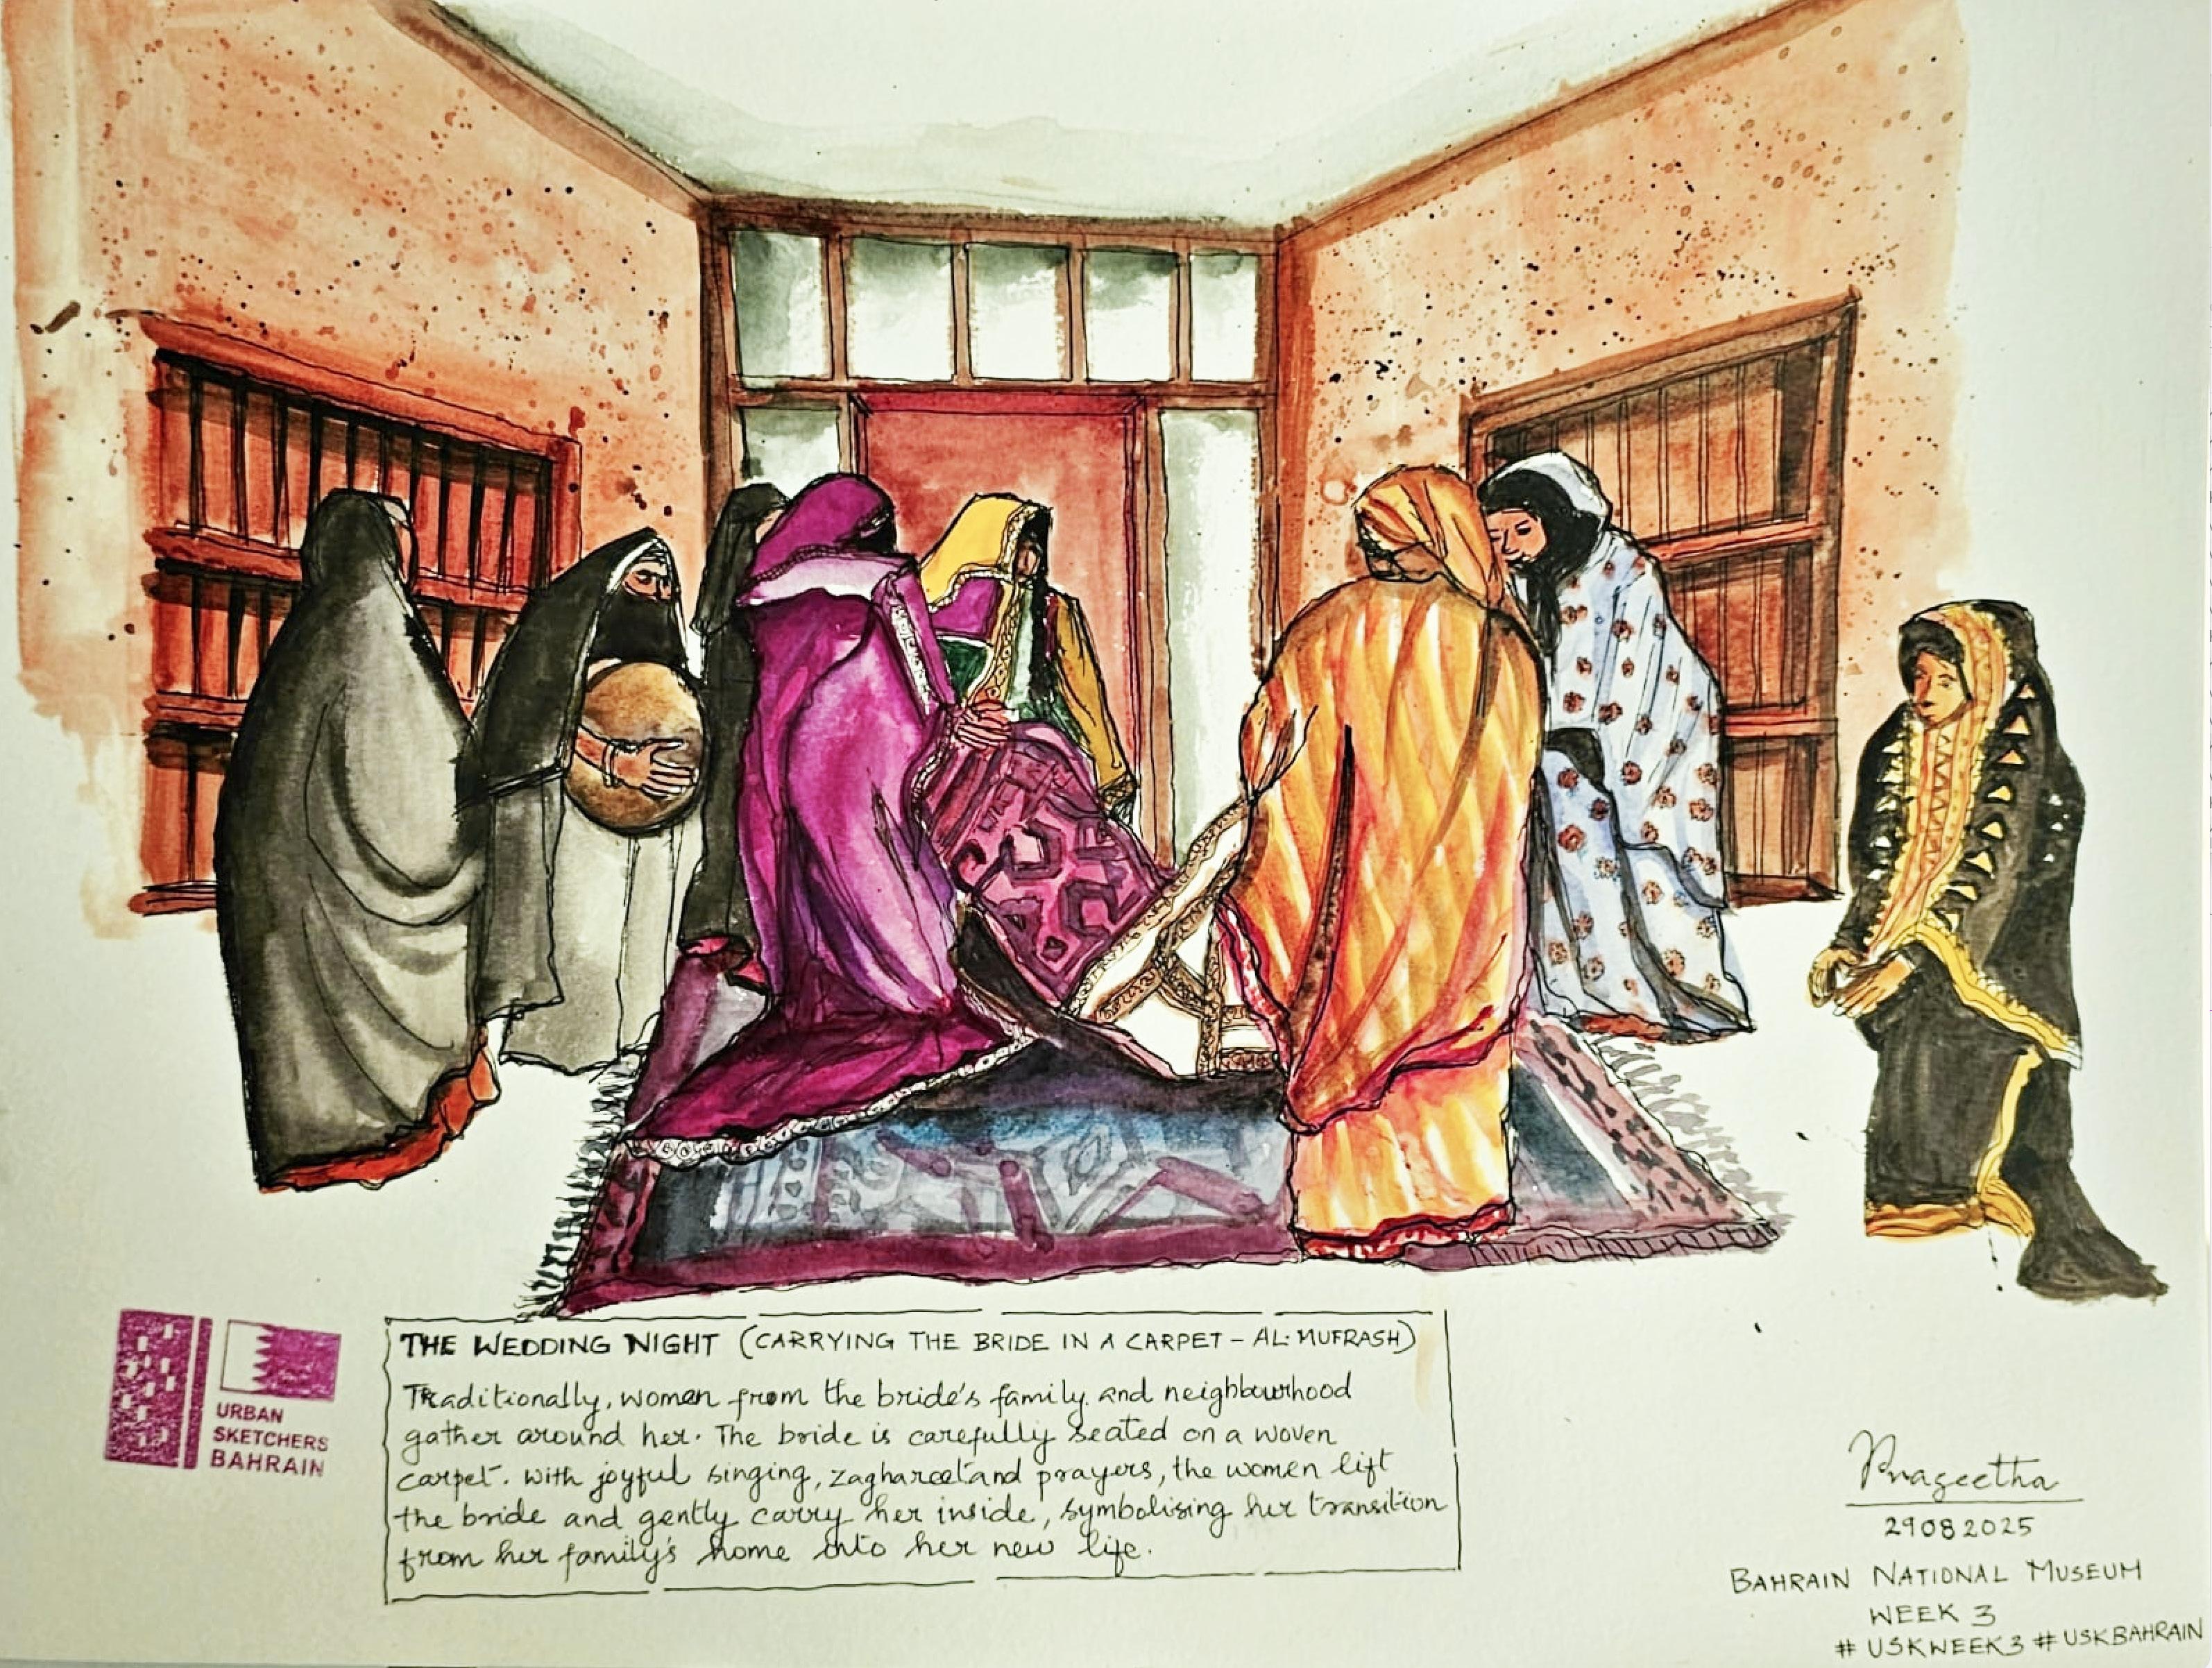 THE WEDDING NIGHT (CARRYING THE BRIDE IN A CARPET - AL-MUFRASH)
Traditionally, women from the bride's family and neighbourhood
gather around her. The bride is carefully seated on a woven
carpet. With joyful singing, zaghareet and prayers, the women lift
the bride and gently carry her inside, symbolising her transition
from her family's home into her new life.
URBAN
SKETCHERS
BAHRAIN
Prageetha
29082025
BAHRAIN NATIONAL MUSEUM
WEEK 3
# USKWEEK3 # USKBAHRAIN